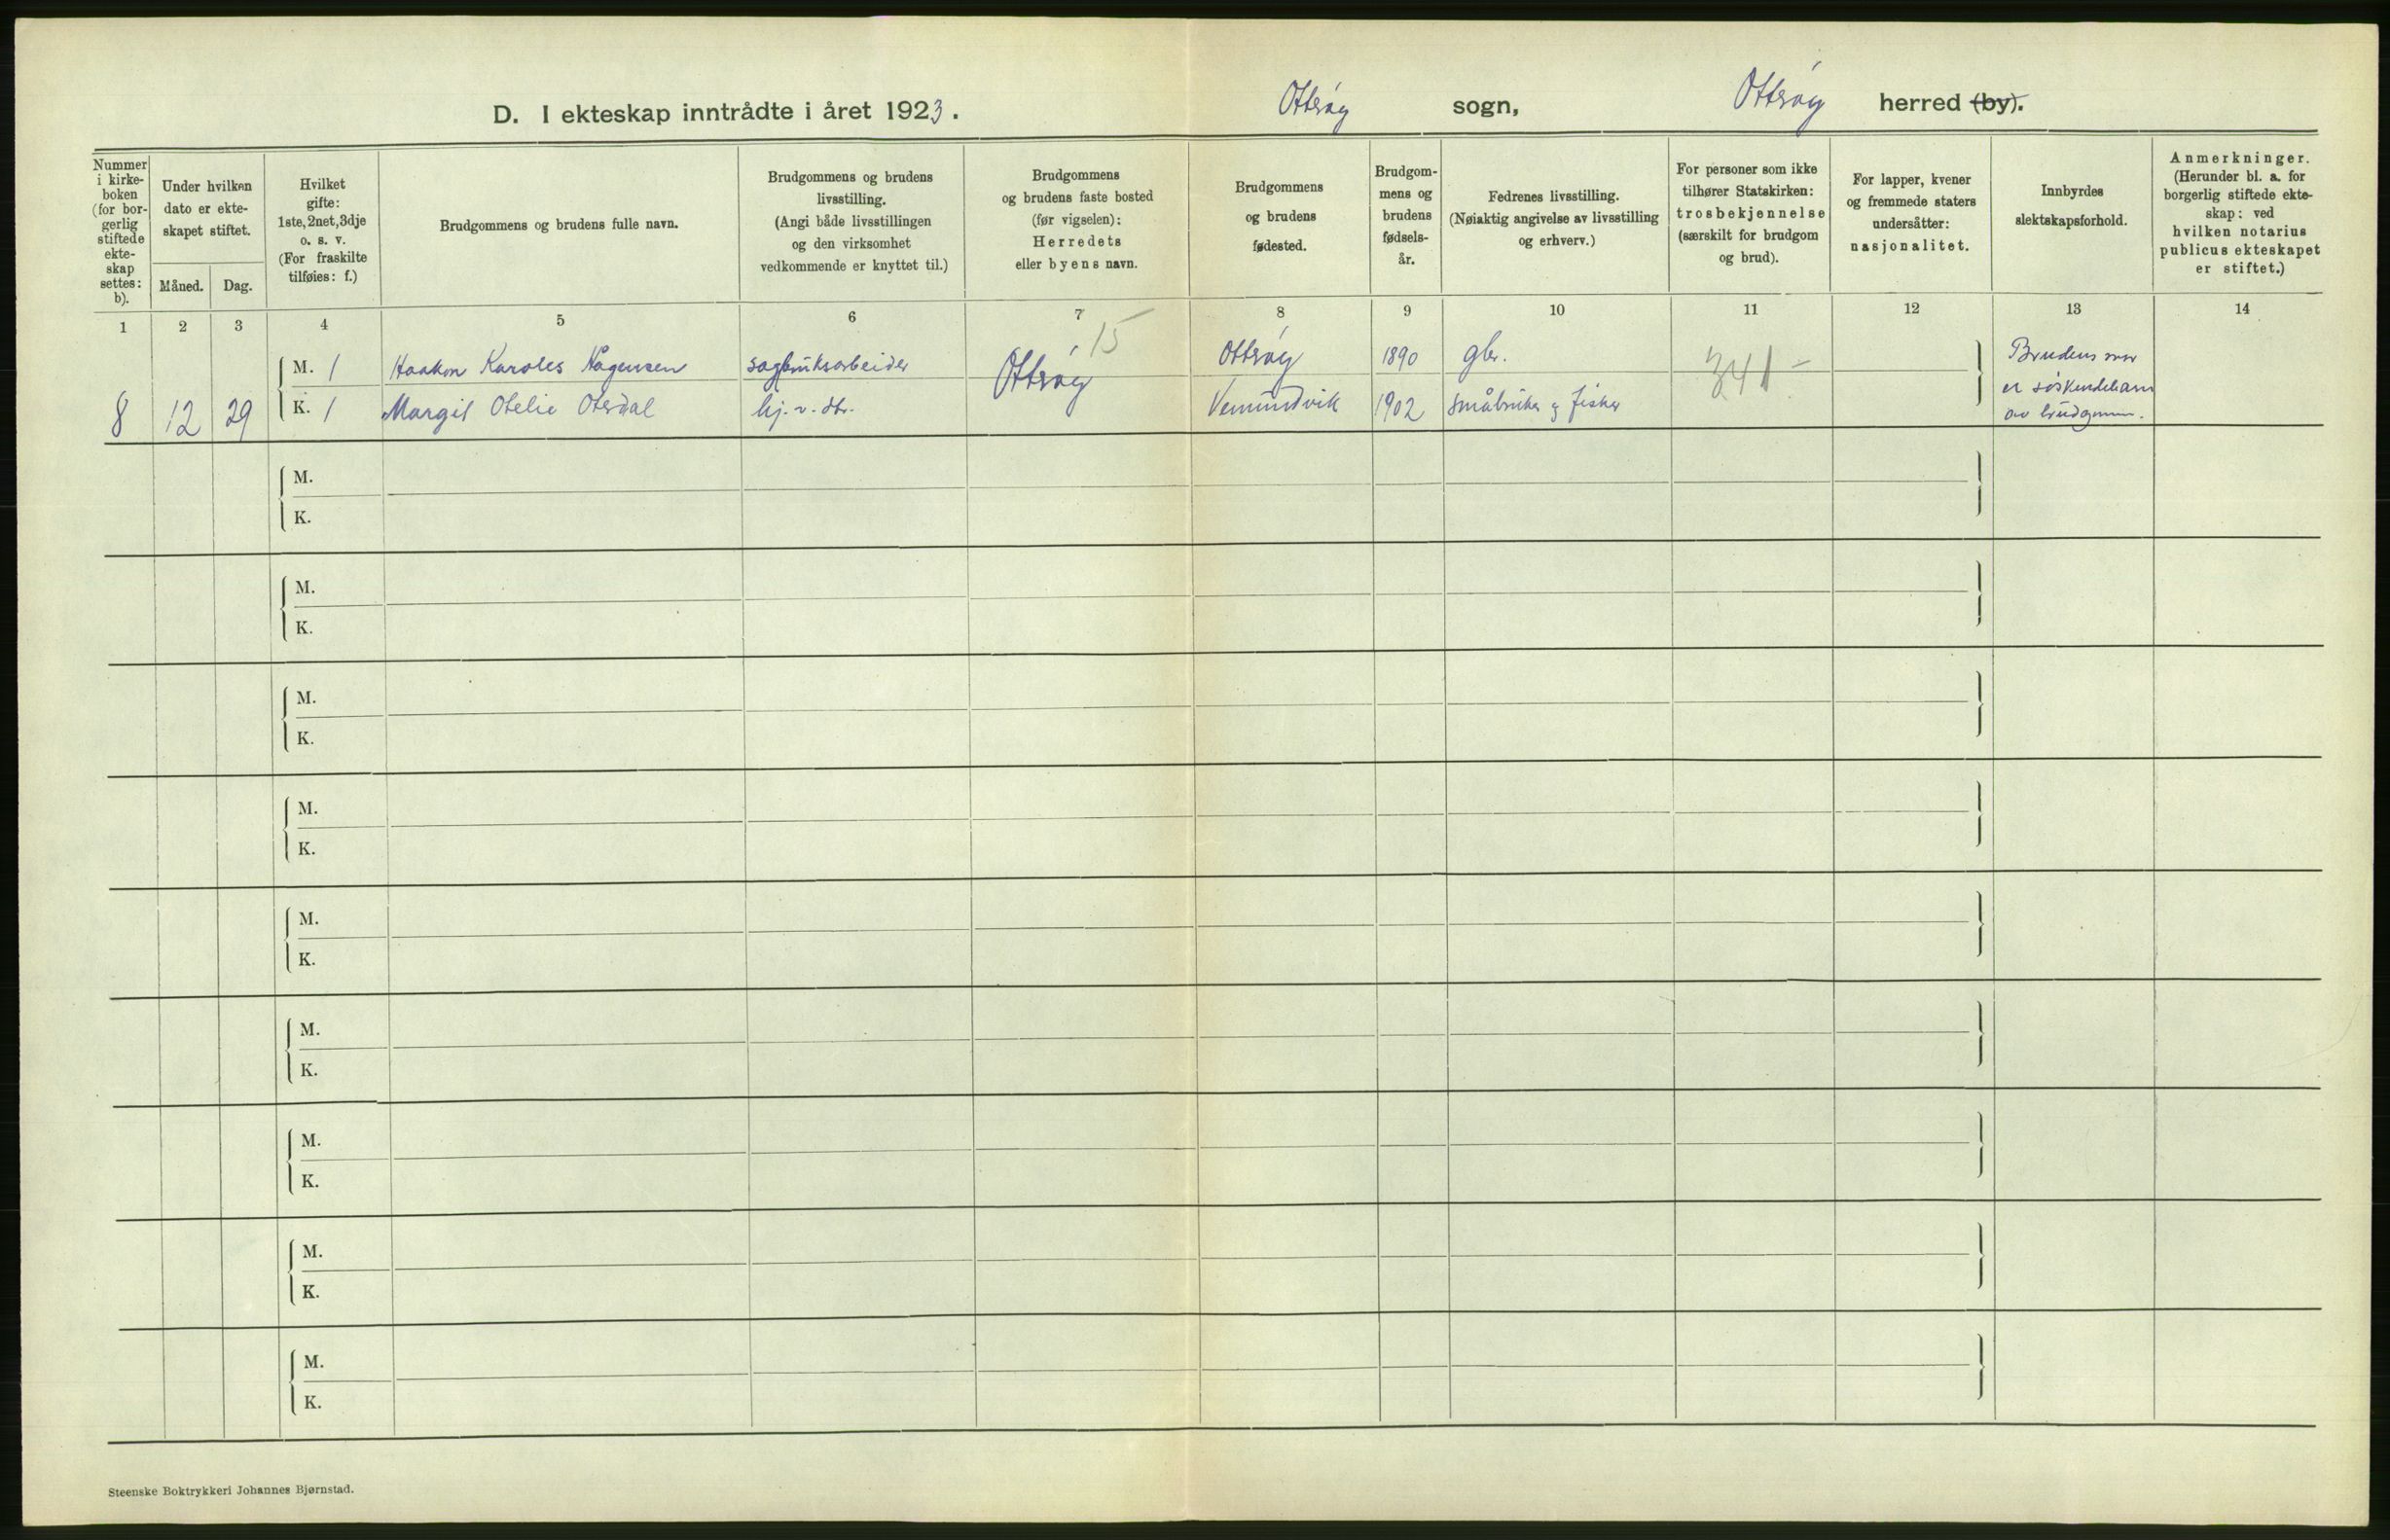 D. I ekteskap inntrådte i året 1923. Otterøy sogn, Otterøy herred (by).
Nummer i kirkeboken (for borgerlig stiftede ekteskap settes: b).
Under hvilken dato er ekteskapet stiftet.
Måned. Dag.
Hvilket gifte: 1ste, 2net, 3dje o. s. v. (For fraskilte tilføies: f.)
Brudgommens og brudens fulle navn.
Brudgommens og brudens livsstilling. (Angi både livsstillingen og den virksomhet vedkommende er knyttet til.)
Brudgommens og brudens faste bosted (før vigselen): Herredets eller byens navn.
Brudgommens og brudens fødested.
Brudgommens og brudens fødselsår.
Fedrenes livsstilling. (Nøiaktig angivelse av livsstilling og erhverv.)
For personer som ikke tilhører Statskirken: trosbekjennelse (særskilt for brudgom og brud).
For lapper, kvener og fremmede staters undersåtter: nasjonalitet.
Innbyrdes slektskapsforhold.
Anmerkninger. (Herunder bl. a. for borgerlig stiftede ekteskap: ved hvilken notarius publicus ekteskapet er stiftet.)
1 2 3 4 5 6 7 8 9 10 11 12 13 14
15
M. 1 Haakon Karoles Hågensen sagbruksarbeider Otterøy Otterøy 1890 gbr. 341 - Brudens mor
er søskendebarn
8 12 29 K. 1 Margit Otelie Oterdal hj. v. dtr. Vemundvik 1902 småbruker og fisker av brudgomm.
M.
K.
M.
K.
M.
K.
M.
K.
M.
K.
M.
K.
M.
K.
M.
K.
M.
K.
Steenske Boktrykkeri Johannes Bjørnstad.